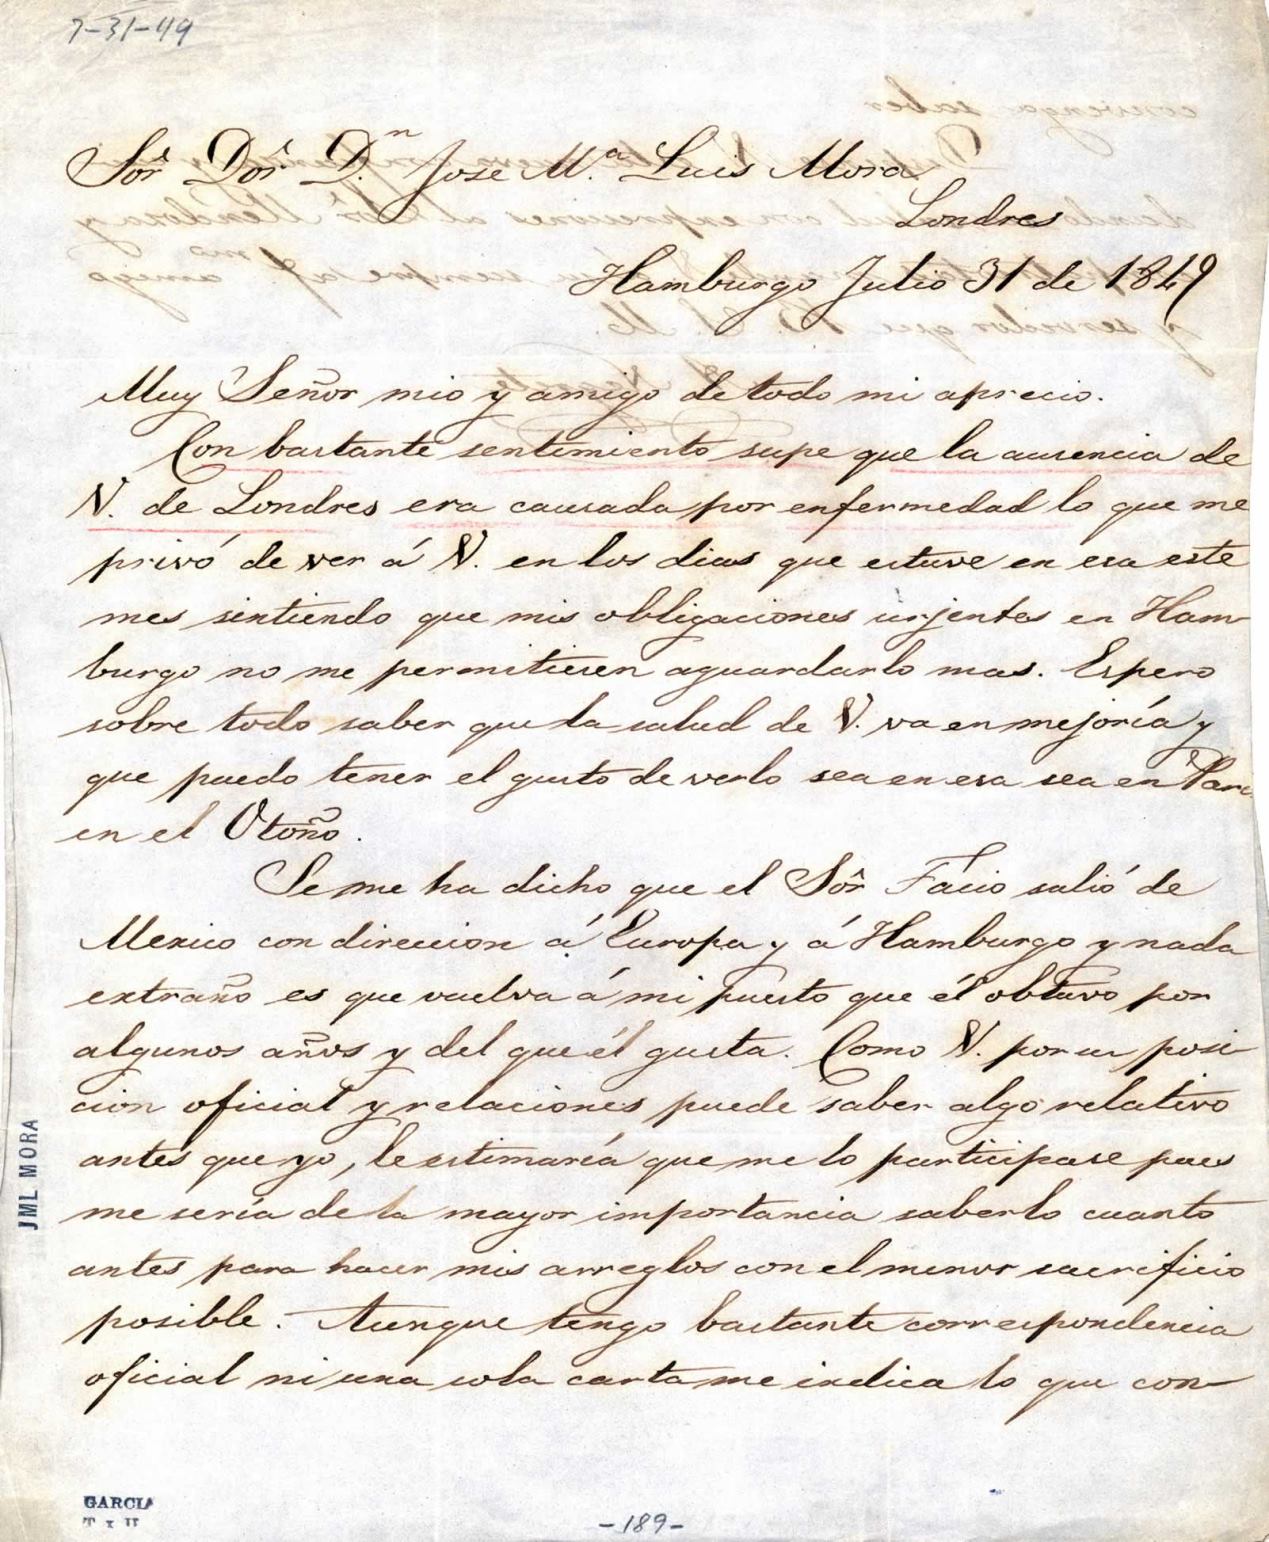 7-31-49
Sôr Dôr D.n Jose M.a Luis Mora
Londres
Hamburgo Julio 31 de 1849
Muy Señor mio y amigo de todo mi aprecio.
Con bastante sentimiento supe que la ausencia de
V. de Londres era causada por enfermedad lo que me
privó de ver á V. en los dias que estuve en esa este
mes sintiendo que mis obligaciones urjentes en Ham-
burgo no me permitiesen aguardarlo mas. Espero
sobre todo saber que la salud de V. va en mejoría y
que puedo tener el gusto de verlo sea en esa sea en Paris
en el Otoño.
Se me ha dicho que el Sôr Facio salió de
Mexico con direccion á Europa y á Hamburgo y nada
extraño es que vuelva á mi puesto que él obtuvo por
algunos años y del que él gusta. Como V. por su posi-
cion oficial y relaciones puede saber algo relativo
antes que yo, le estimaría que me lo participase pues
me sería de la mayor importancia saberlo cuanto
antes para hacer mis arreglos con el menor sacrificio
posible. Aunque tengo bastante correspondencia
oficial ni una sola carta me indica lo que con-
JML MORA
GARCIA
-189-